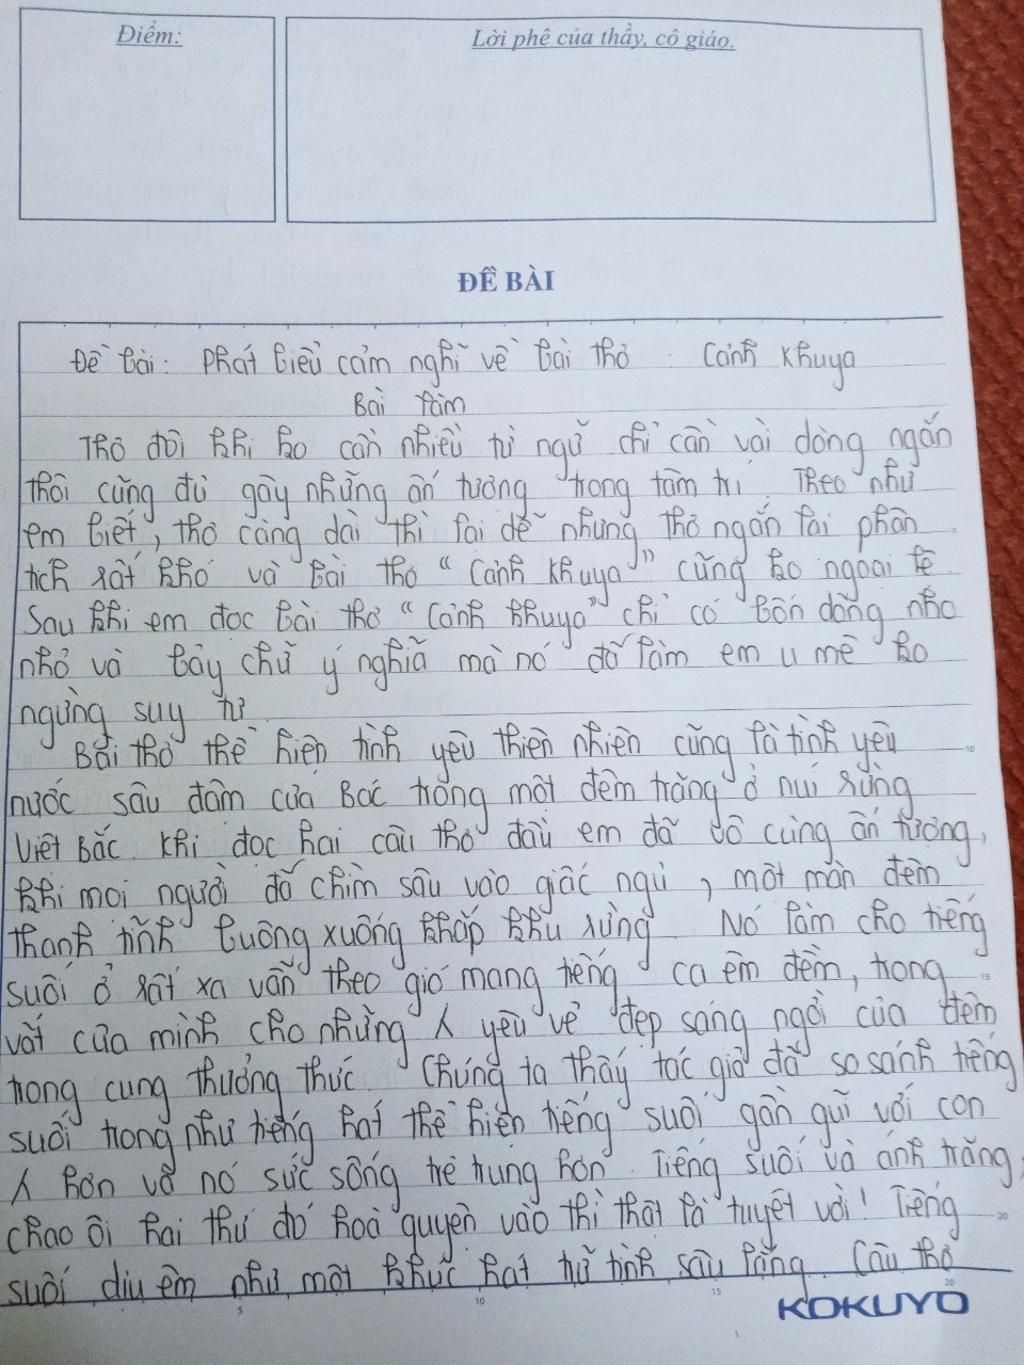 Điểm:
Lời phê của thầy, cô giáo.
ĐỀ BÀI
Đề bài: Phát biểu cảm nghĩ về bài thơ : Cảnh Khuya
Bài làm
Thơ đôi khi ko cần nhiều từ ngữ chỉ cần vài dòng ngắn
thôi cũng đủ gây những ấn tượng trong tâm trí. Theo như
em biết, thơ càng dài thì lại dễ nhưng thơ ngắn lại phân
tích rất khó và bài thơ “Cảnh Khuya” cũng ko ngoại lệ.
Sau khi em đọc bài thơ “Cảnh khuya” chỉ có bốn dòng nho
nhỏ và bảy chữ ý nghĩa mà nó đã làm em u mê ko
ngừng suy tư
Bài thơ thể hiện tình yêu thiên nhiên cũng là tình yêu
nước sâu đậm của Bác trong một đêm trăng ở núi rừng
Việt Bắc. Khi đọc hai câu thơ đầu em đã vô cùng ấn tượng,
khi mọi người đã chìm sâu vào giấc ngủ, một màn đêm
thanh tĩnh buông xuống khắp khu rừng. Nó làm cho tiếng
suối ở rất xa vẫn theo gió mang tiếng ca êm đềm, trong
vắt của mình cho những λ yêu vẻ đẹp sáng ngời của đêm
trong cung thưởng thức. Chúng ta thấy tác giả đã so sánh tiếng
suối trong như tiếng hát thể hiện tiếng suối gần gũi với con
λ hơn và nó sức sống trẻ trung hơn. Tiếng suối và ánh trăng,
chao ôi hai thứ đó hoà quyện vào thì thật là tuyệt vời! Tiếng
suối dịu êm như một khúc hát trữ tình sâu lắng. Câu thơ
KOKUYO